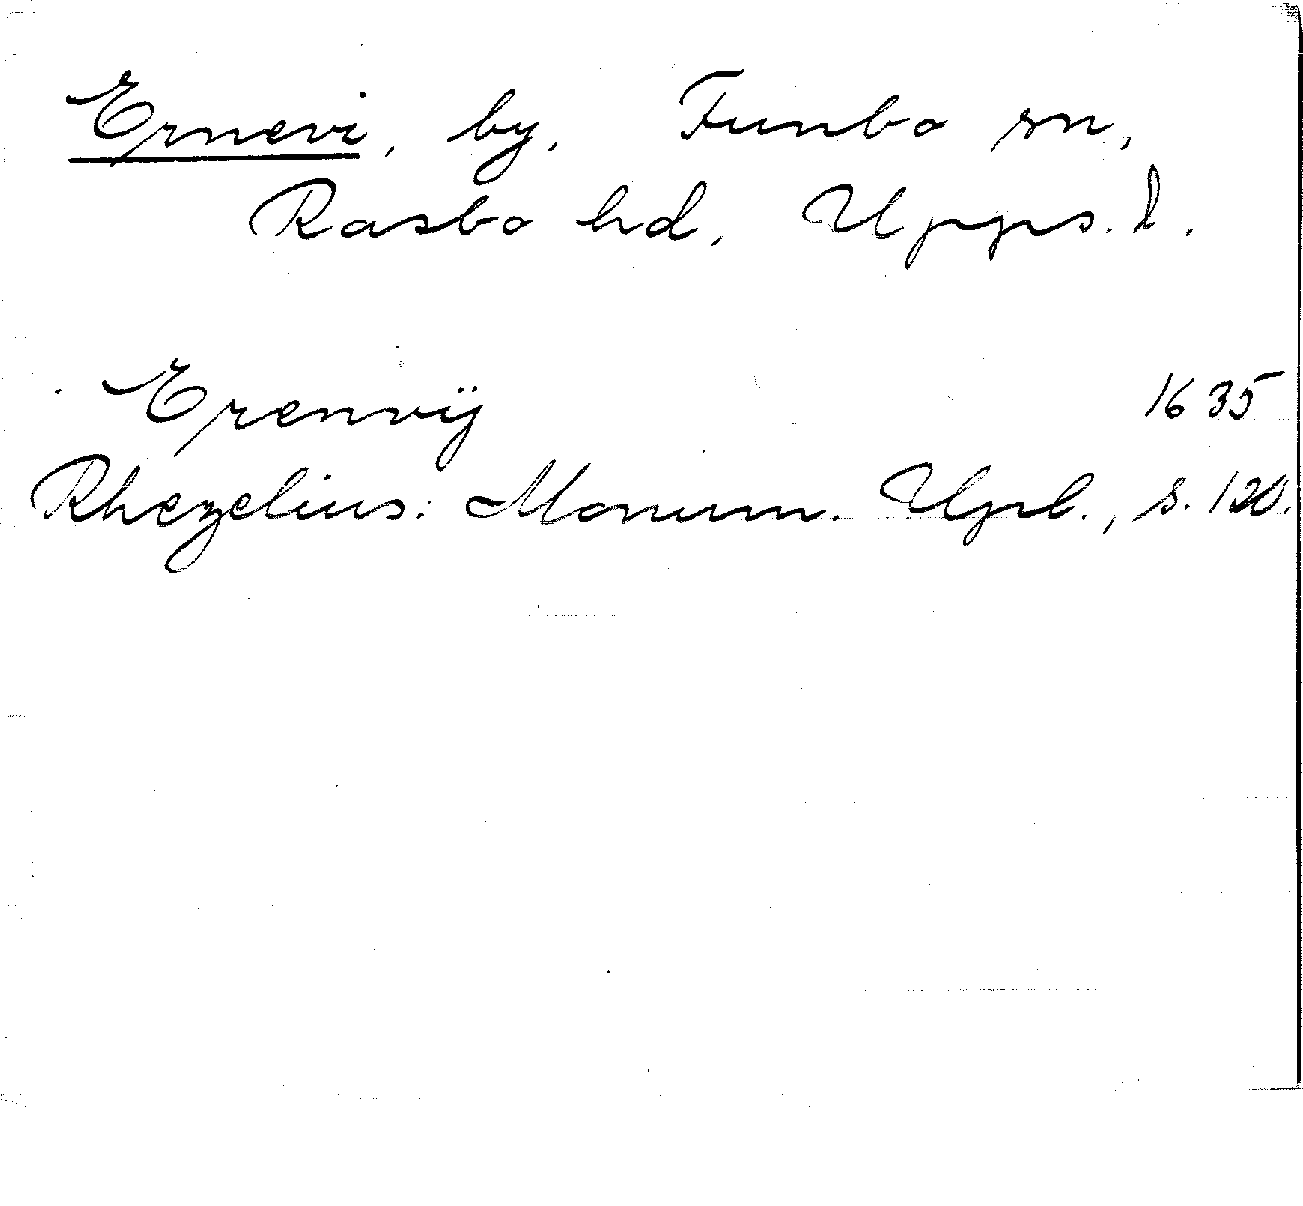 Ernevi, by, Funbo sn,
Rasbo hd, Upps. l.
Erenvÿ 1635
Rhezelius: Monum. Upl., s. 120.